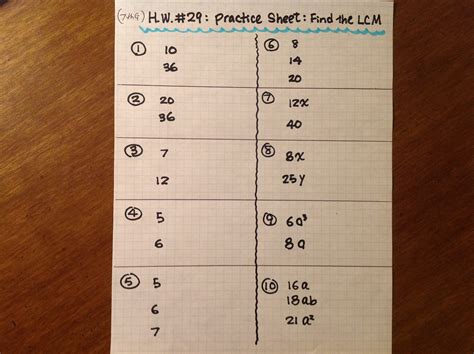 (7th G) H.W. #29: Practice Sheet: Find the LCM
① 10
36
② 20
36
③ 7
12
④ 5
6
⑤ 5
6
7
⑥ 8
14
20
⑦ 12x
40
⑧ 8x
25y
⑨ 6a³
8a
⑩ 16a
18ab
21a²